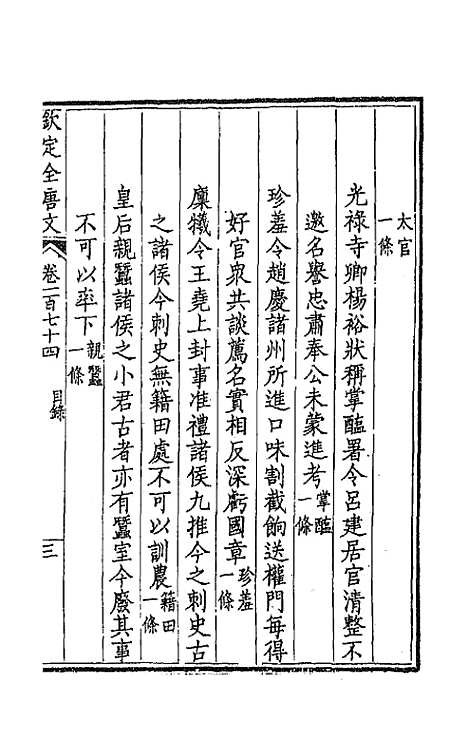 太官
一條
光祿寺卿楊裕狀稱掌醢署令呂建居官清整不
邀名譽忠肅奉公未蒙進考掌醢一條
珍羞令趙慶諸州所進口味割截餉送權門每得
好官衆共談薦名實相反深虧國章珍羞一條
廩犧令王堯上封事准禮諸侯九推今之刺史古
之諸侯今刺史無籍田處不可以訓農籍田一條
皇后親蠶諸侯之小君古者亦有蠶室今廢其事
不可以率下親蠶一條
欽定全唐文 卷一百七十四 目錄 三